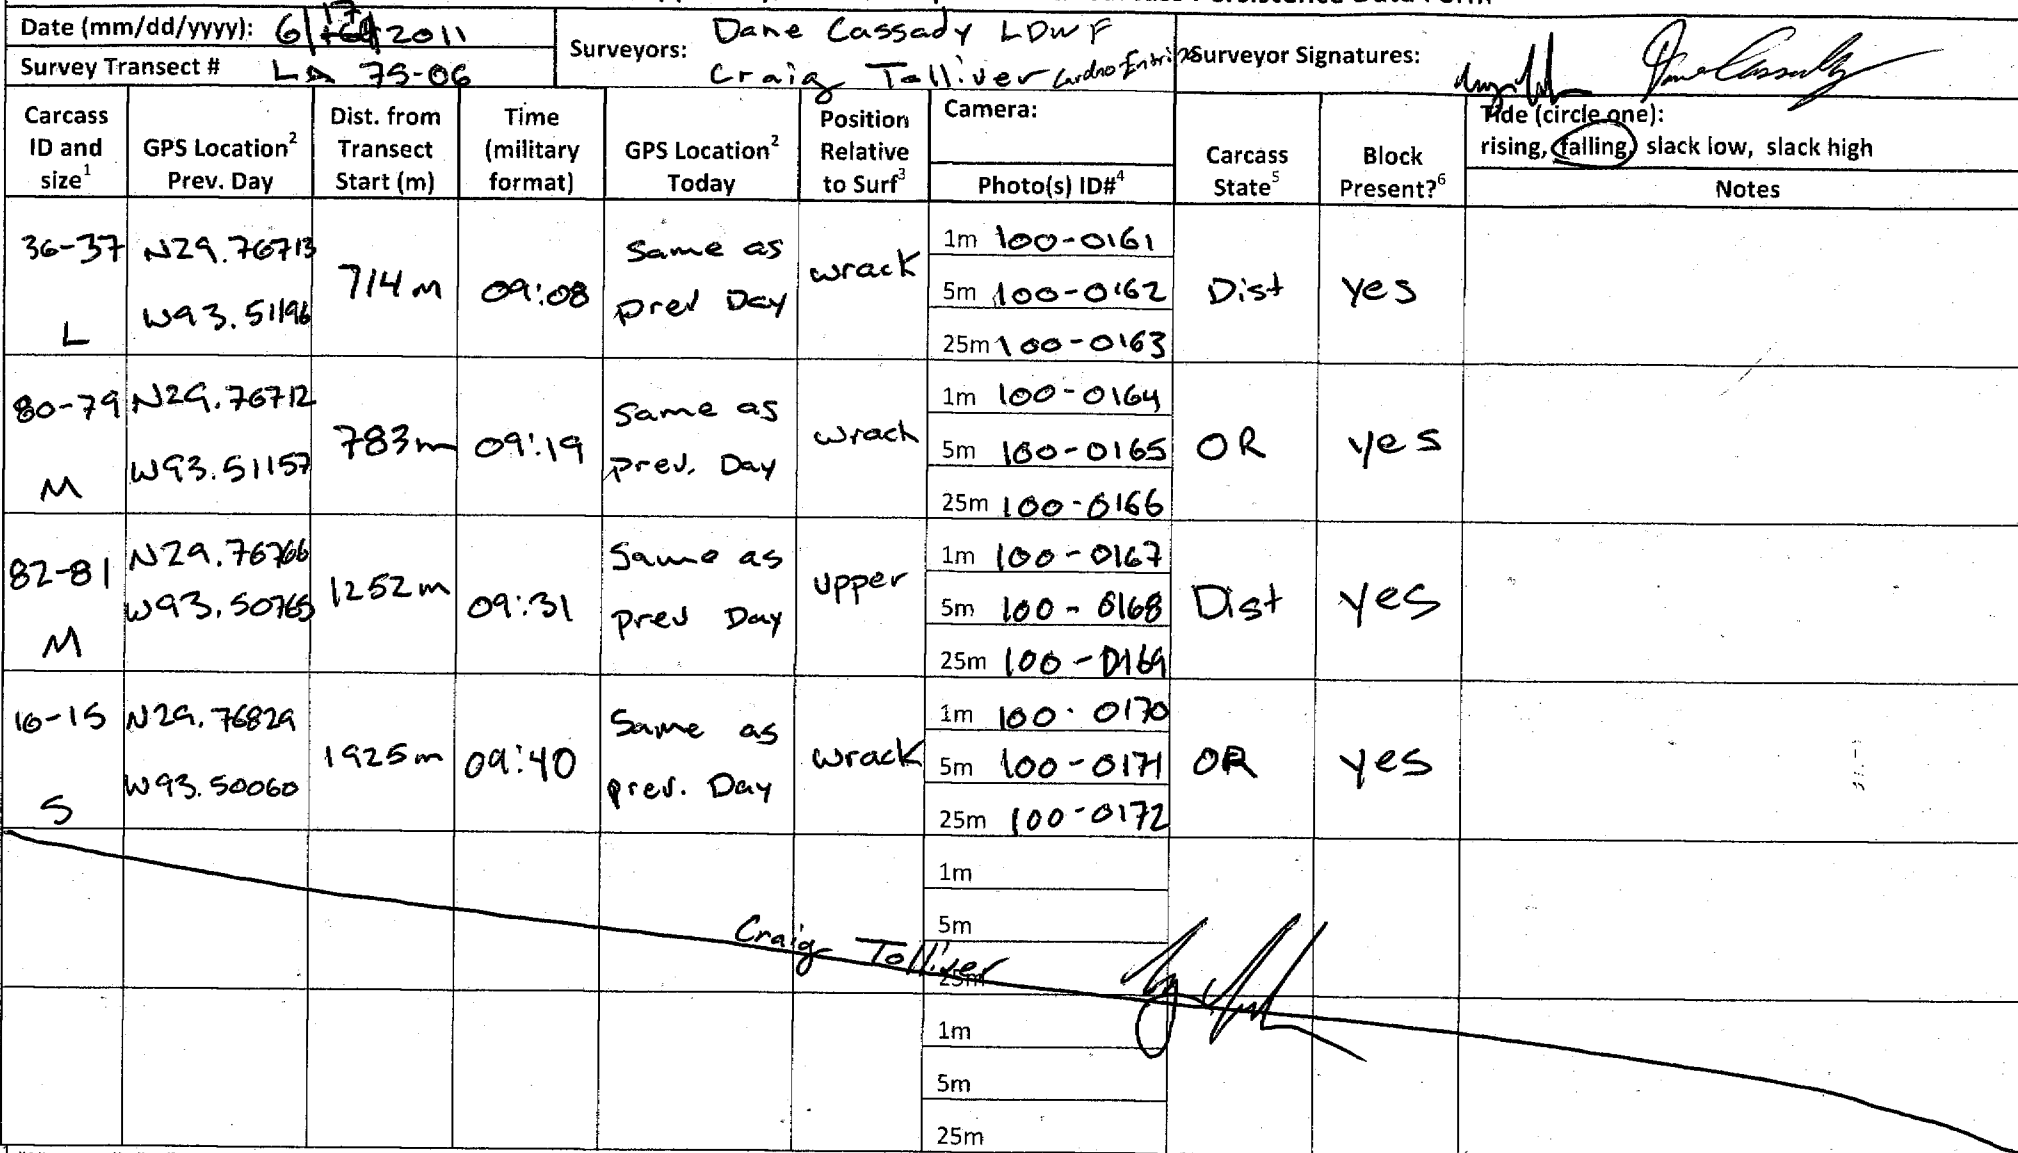 Date (mm/dd/yyyy): 6/17/2011
Survey Transect # LA 75-06
Surveyors: Dane Cassady LDWF
Craig Tolliver Cardno Entrix
Surveyor Signatures:
Carcass ID and size1
GPS Location2 Prev. Day
Dist. from Transect Start (m)
Time (military format)
GPS Location2 Today
Position Relative to Surf3
Camera:
Photo(s) ID#4
Carcass State5
Block Present?6
Tide (circle one):
rising, falling, slack low, slack high
Notes
36-37 L
N29.76713
W93.51196
714m
09:08
Same as
prev Day
wrack
1m 100-0161
5m 100-0162
25m 100-0163
Dist
yes
80-79 M
N29.76712
W93.51157
783m
09:19
Same as
prev. Day
wrack
1m 100-0164
5m 100-0165
25m 100-0166
OR
yes
82-81 M
N29.76766
W93.50765
1252m
09:31
Same as
prev Day
upper
1m 100-0167
5m 100-0168
25m 100-0169
Dist
yes
16-15 S
N29.76829
W93.50060
1925m
09:40
Same as
prev. Day
wrack
1m 100-0170
5m 100-0171
25m 100-0172
OR
yes
1m
5m
25m
Craig Tolliver
1m
5m
25m